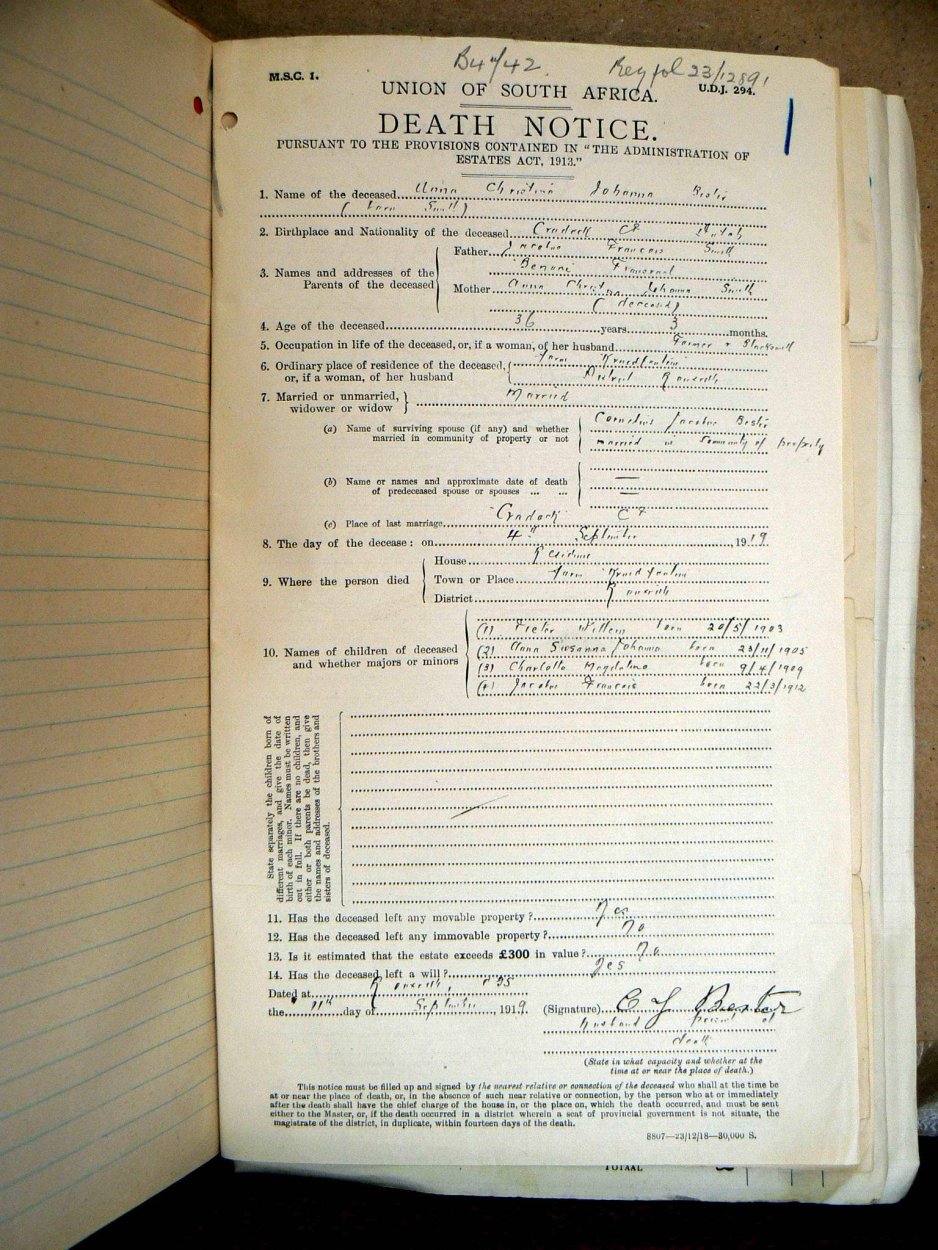 B4/42. Reg fol 23/1289
M.S.C. 1.
U.D.J. 294.
UNION OF SOUTH AFRICA.
DEATH NOTICE.
PURSUANT TO THE PROVISIONS CONTAINED IN "THE ADMINISTRATION OF
ESTATES ACT, 1913."
1. Name of the deceased Anna Christina Johanna Bester
(born Smith)
2. Birthplace and Nationality of the deceased Cradock CP Dutch
3. Names and addresses of the Parents of the deceased
Father Jacobus Francois Smith
Benoni Transvaal
Mother Anna Christina Johanna Smith
(deceased)
4. Age of the deceased 36 years 3 months.
5. Occupation in life of the deceased, or, if a woman, of her husband Farmer +
6. Ordinary place of residence of the deceased, Farm
or, if a woman, of her husband District Rouxville
7. Married or unmarried, widower or widow Married
(a) Name of surviving spouse (if any) and whether Cornelius Jacobus Bester
married in community of property or not married in Community of property
(b) Name or names and approximate date of death
of predeceased spouse or spouses ... ...
(c) Place of last marriage Cradock CP
8. The day of the decease: on 4th September 1919
9. Where the person died
House Residence
Town or Place Farm
District Rouxville
10. Names of children of deceased and whether majors or minors
(1) Pieter Willem born 20/5/1903
(2) Anna Susanna Johanna born 23/11/1905
(3) Charlotta Magdalena born 9/4/1909
(4) Jacobus Francois born 22/3/1912
State separately the children born of
different marriages, and give the date of
birth of each minor. Names must be written
out in full. If there are no children, and
either or both parents be dead, then give
the names and addresses of the brothers and
sisters of deceased.
11. Has the deceased left any movable property? Yes
12. Has the deceased left any immovable property? No
13. Is it estimated that the estate exceeds £300 in value? No
14. Has the deceased left a will? Yes
Dated at Rouxville,
the 11th day of September, 1919. (Signature) C J Bester
husband present at
death
(State in what capacity and whether at the
time at or near the place of death.)
This notice must be filled up and signed by the nearest relative or connection of the deceased who shall at the time be
at or near the place of death, or, in the absence of such near relative or connection, by the person who at or immediately
after the death shall have the chief charge of the house in, or the place on, which the death occurred, and must be sent
either to the Master, or, if the death occurred in a district wherein a seat of provincial government is not situate, the
magistrate of the district, in duplicate, within fourteen days of the death.
8807—23/12/18—30,000 S.
TOTAAL